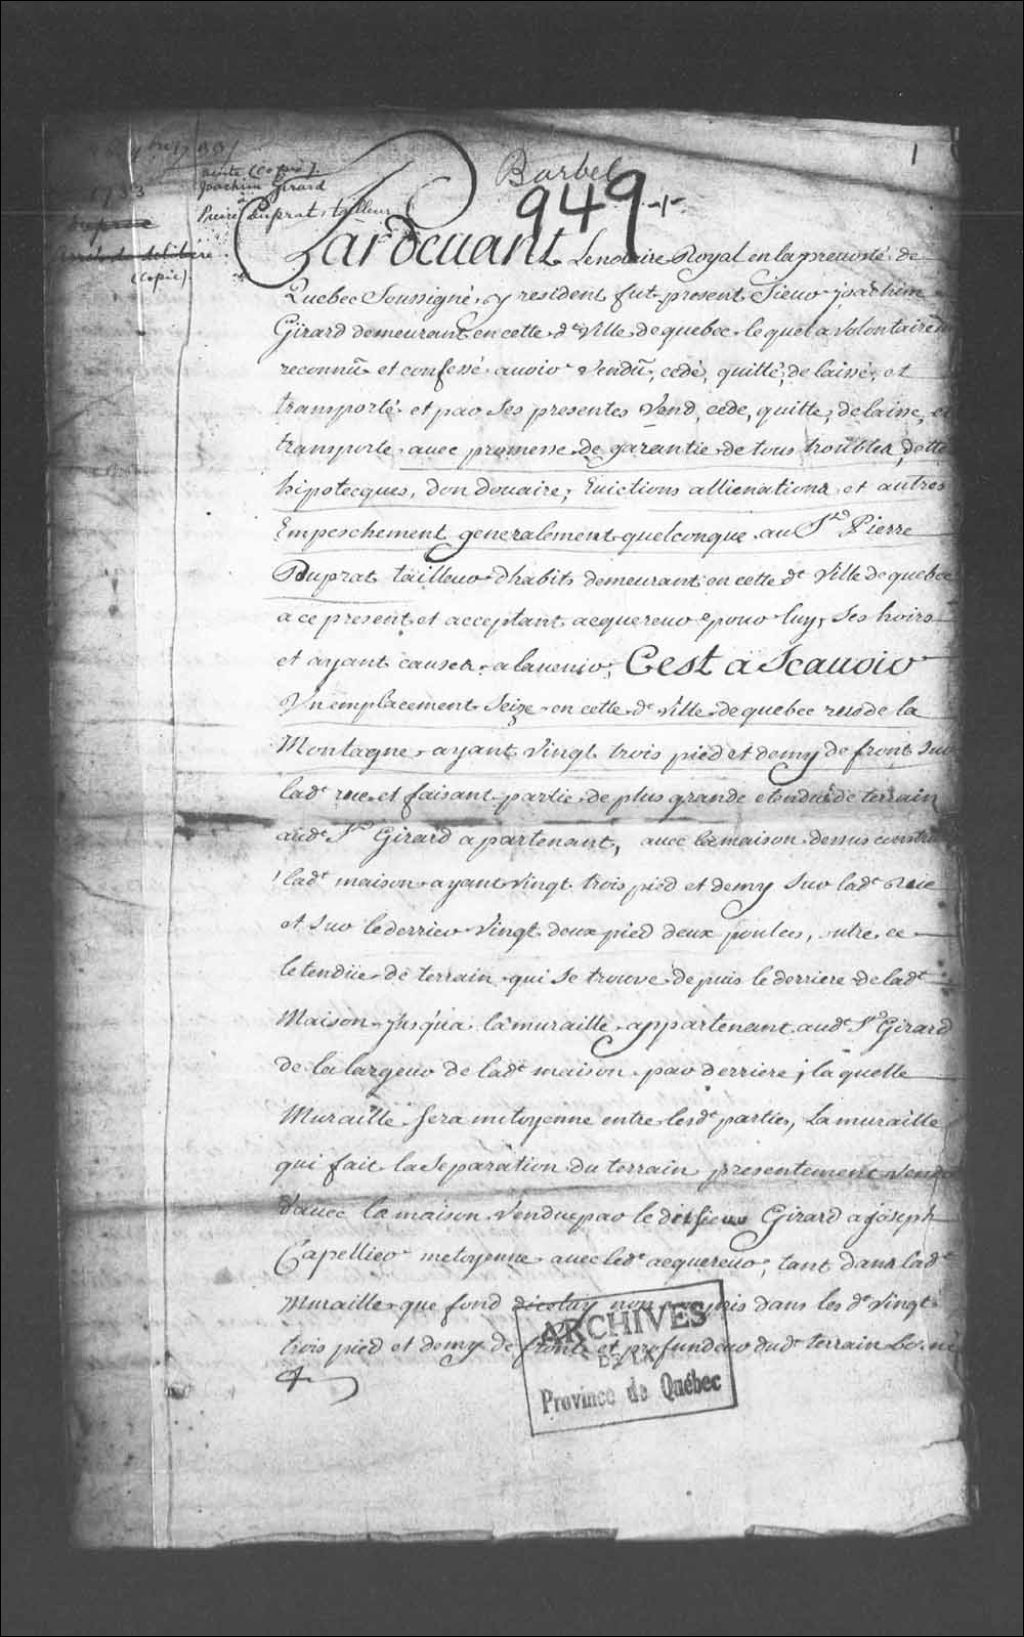 1733
vente (copie).
Joachim Girard
à
Pierre Duprat, tailleur
(copie)
Barbel
1
949
Pardeuant Lenotaire Royal en la preuosté de
Quebec Soussigné, y resident fut present Sieur joachim
Girard demeurant en cette de Ville de quebec lequel a volontairemt
reconnû et confessé auoir Vendû, cedé, quitté, delaissé, et
transporté et par Ses presentes Vend, cede, quitte, delaisse, et
transporte auec promesse de garantie de tous troubles, dette
hipotecques, don douaire, Euictions allienations et autres
Empeschement generalement quelconque au Sr Pierre
Duprat tailleur dhabits demeurant en cette de Ville de quebec
a ce present et acceptant acquereur pour luy, Ses hoirs
et ayant causes a lauenir, Cest a Scauoir
Un emplacement Seize en cette de Ville de quebec rue de la
Montagne ayant Vingt trois pied et demy de front Sur
ladt rue et faisant partie de plus grande etendüe de terrain
audt Sr Girard apartenant, auec la maison dessus constru
ladt maison ayant Vingt trois pied et demy Sur ladt Rüe
et Sur le derrier Vingt deux pied deux poulces, outre ce
letendüe de terrain qui Se trouve depuis le derriere de ladt
Maison Jusqua la muraille appartenant audt Sr Girard
de la largeur de ladt maison par derriere; laquelle
Muraille Sera mitoyenne entre lesdt parties, La muraille
qui fait la Separation du terrain presentement Vendu
dauec la maison Vendue par le dit Sieur Girard a joseph
Capellier metoyenne auec ledt acquereur, tant dans ladt
Muraille que fond diceluy non compris dans les dt Vingt
trois pied et demy de front et profundeur dudt terrain borné
ARCHIVES
DE LA
Province de Québec